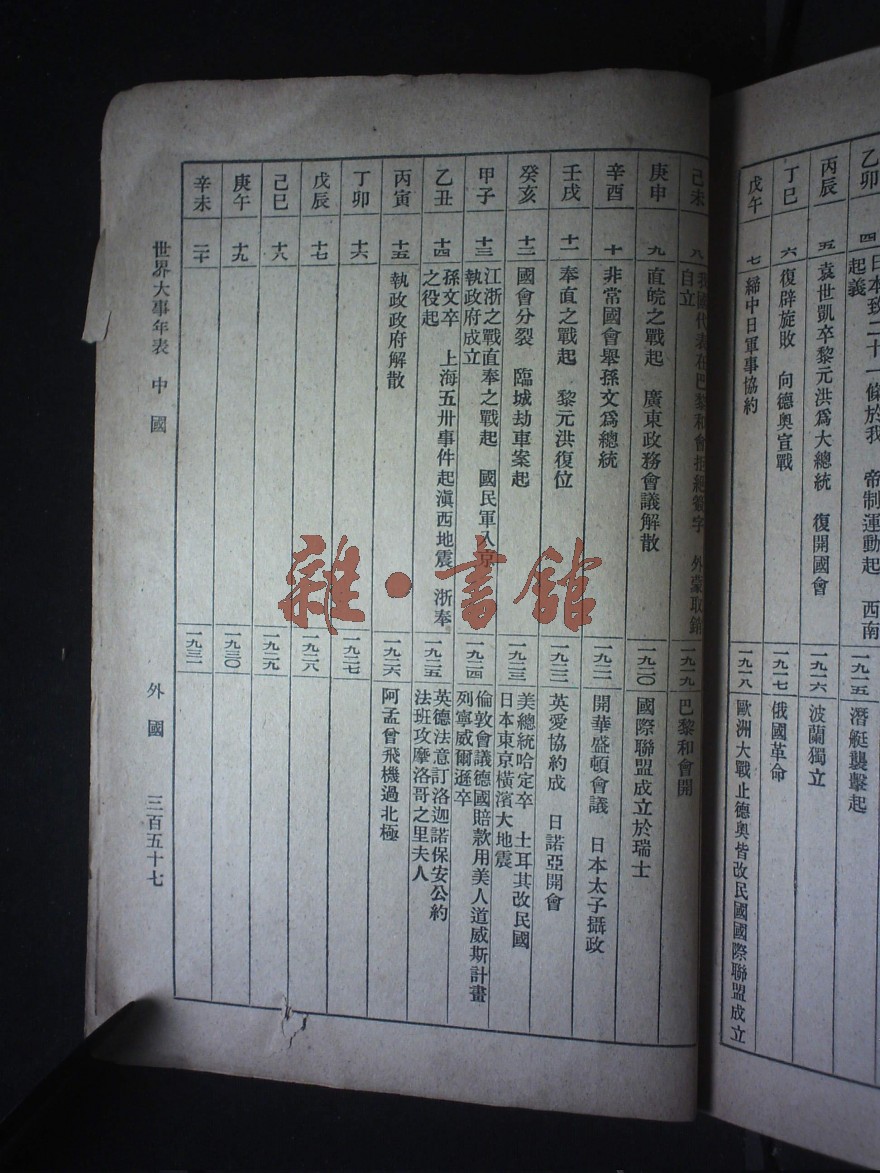 乙卯 四 日本致二十一條於我 帝制運動起 西南
起義
一九一五 潛艇襲擊起
丙辰 五 袁世凱卒黎元洪爲大總統 復開國會
一九一六 波蘭獨立
丁巳 六 復辟旋敗 向德奧宣戰
一九一七 俄國革命
戊午 七 締中日軍事協約
一九一八 歐洲大戰止德奧皆改民國國際聯盟成立
己未 八 我國代表在巴黎和會拒絕簽字 外蒙取銷
自立
一九一九 巴黎和會開
庚申 九 直皖之戰起 廣東政務會議解散
一九二〇 國際聯盟成立於瑞士
辛酉 十 非常國會舉孫文爲總統
一九二一 開華盛頓會議 日本太子攝政
壬戌 十一 奉直之戰起 黎元洪復位
一九二二 英愛協約成 日諾亞開會
癸亥 十二 國會分裂 臨城劫車案起
一九二三 美總統哈定卒 土耳其改民國
日本東京橫濱大地震
甲子 十三 江浙之戰直奉之戰起 國民軍入京
執政府成立
一九二四 倫敦會議德國賠款用美人道威斯計畫
列寧威爾遜卒
乙丑 十四 孫文卒 上海五卅事件起滇西地震 浙奉
之役起
一九二五 英德法意訂洛迦諾保安公約
法班攻摩洛哥之里夫人
丙寅 十五 執政政府解散
一九二六 阿孟曾飛機過北極
丁卯 十六
一九二七
戊辰 十七
一九二八
己巳 十八
一九二九
庚午 十九
一九三〇
辛未 二十
一九三一
世界大事年表 中國 外國 三百五十七
雜·書館